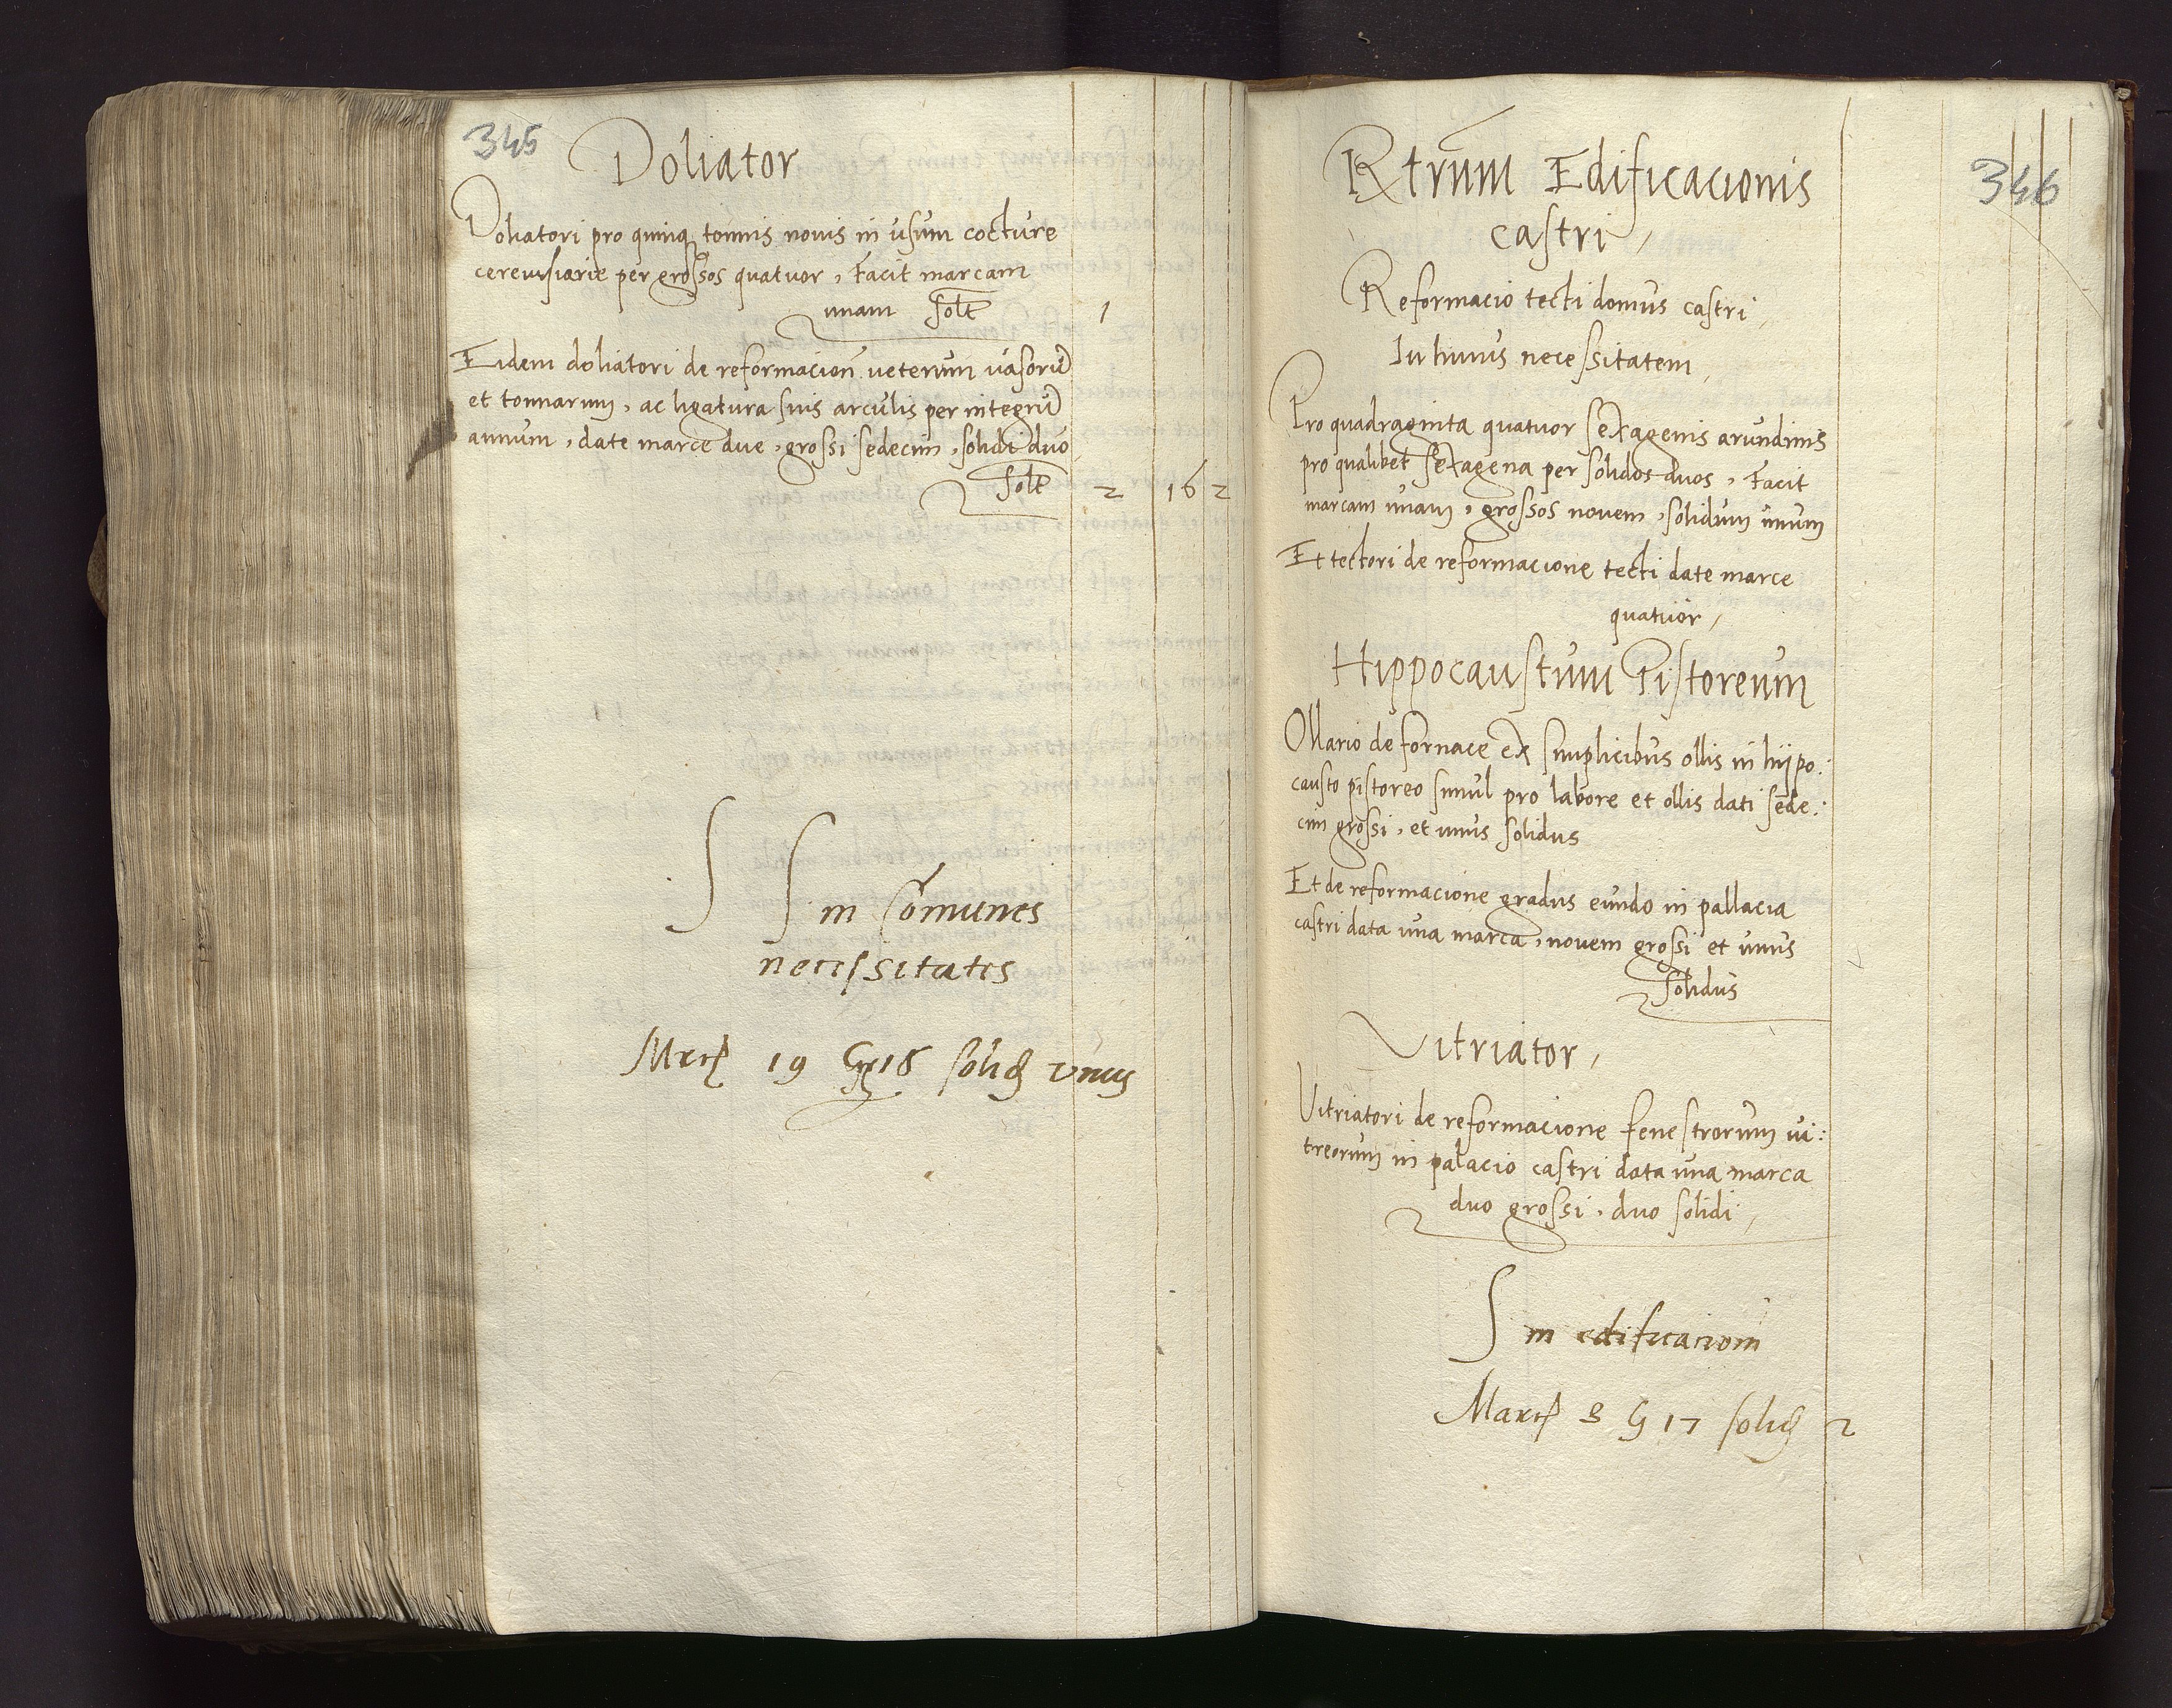 345
Doliator
Doliatori pro quinq tonnis novis in usum cocture
cerevisiarie per grossos quatuor, Facit marcam
unam solt 1
Eidem doliatori de reformacion veterum vasoru
et tonnarum, ac ligatura suis arculis per integru
annum, date marce due, grossi sedecim, solidi duo
solt 2 16 2
S S in Comunes
necessitates
Mrcę 19 G 18 solid unus
346
Rtrum Edificacionis
castri
Reformacio tecti domus castri
In huius necessitatem
Pro quadraginta quatuor sexagenis arundinis
pro qualibet sexagena per solidos duos, Facit
marcam unam, grossos novem, solidum unum
Et tectori de reformacione tecti date marce
quatuor
Hippocaustum Pistoreum
Ollario de fornace ex simplicibus ollis in hijpo:
causto pistoreo simul pro labore et ollis dati sede:
cim grossi, et unus solidus
Et de reformacione gradus eundo in pallacia
castri data una marca, novem grossi et unus
solidus
Vitriator
Vitriatori de reformacione fenestrorum vi:
treorum in palacio castri data una marca
duo grossi, duo solidi
S in edificacioni
Marcę 8 G 17 solid 2